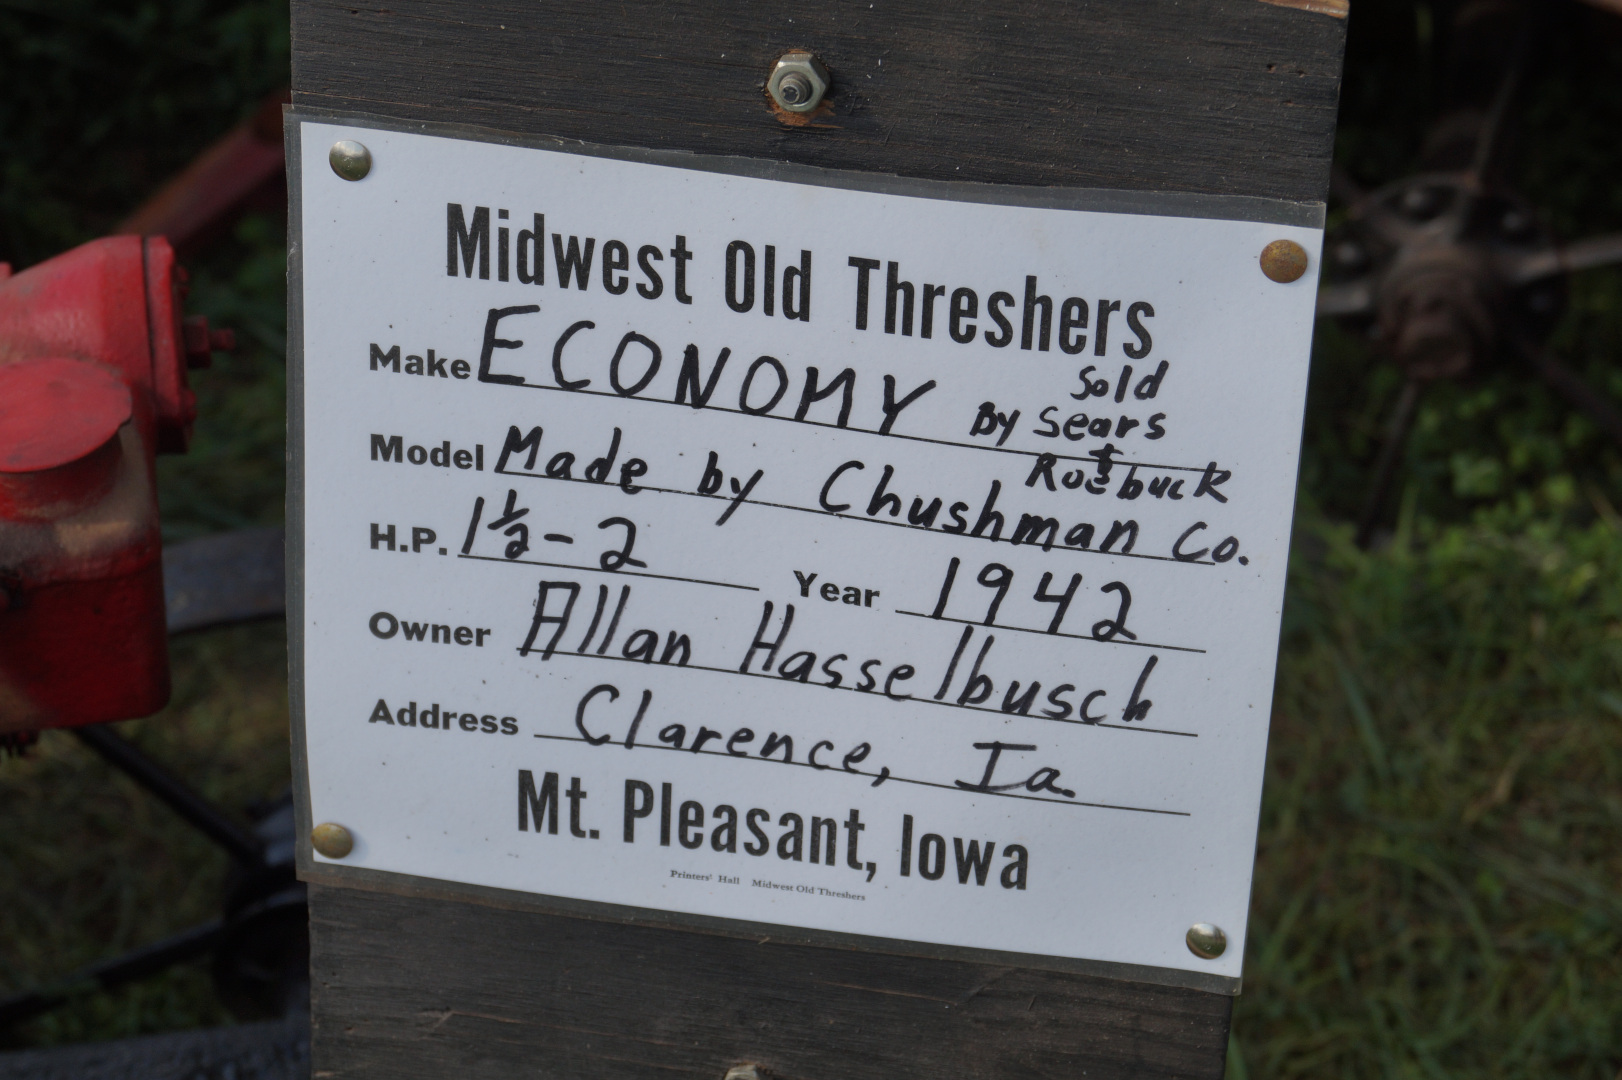 Midwest Old Threshers
Make ECONOMY Sold
By Sears
& Roebuck
Model Made by Chushman Co.
H.P. 1½-2 Year 1942
Owner Allan Hasselbusch
Address Clarence, Ia.
Mt. Pleasant, Iowa
Printers' Hall Midwest Old Threshers